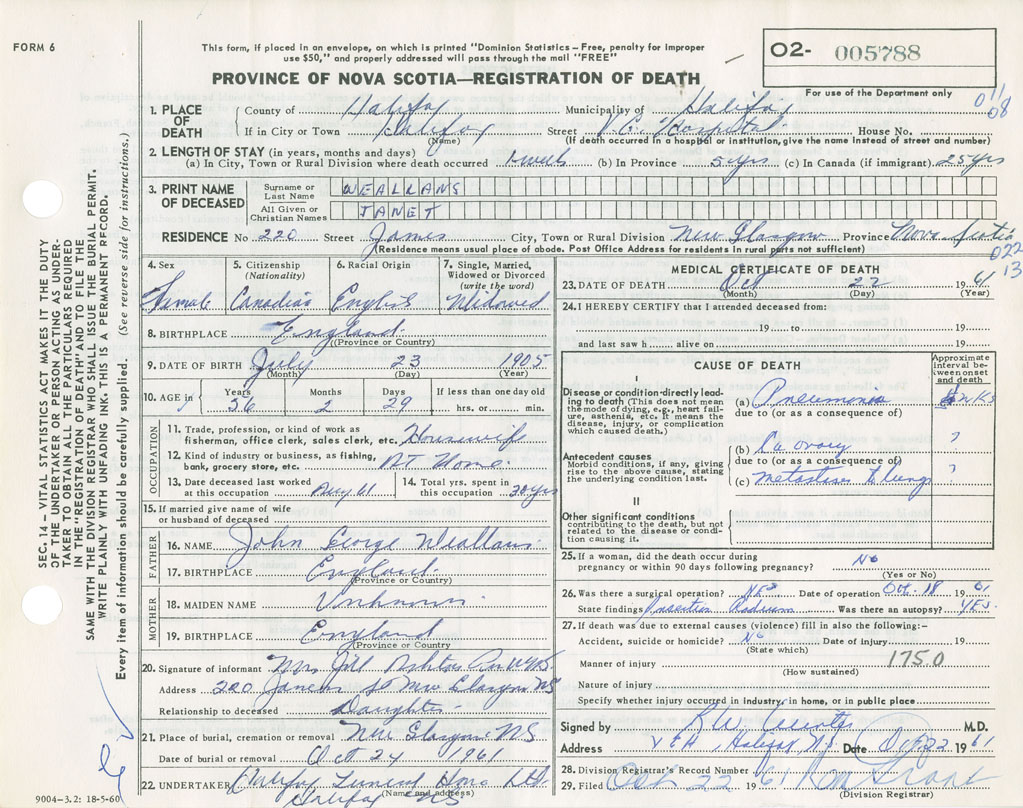 FORM 6
This form, if placed in an envelope, on which is printed "Dominion Statistics – Free, penalty for improper
use $50," and properly addressed will pass through the mail "FREE"
PROVINCE OF NOVA SCOTIA—REGISTRATION OF DEATH
O2- 005788
For use of the Department only
011
08
1. PLACE OF DEATH
County of Halifax Municipality of Halifax
If in City or Town Halifax Street V.G. Hospital House No.
(Name) (If death occurred in a hospital or institution, give the name instead of street and number)
2. LENGTH OF STAY (in years, months and days)
(a) In City, Town or Rural Division where death occurred 1 week (b) In Province 5 yrs (c) In Canada (if immigrant) 25 yrs
3. PRINT NAME OF DECEASED
Surname or Last Name WEALLANS
All Given or Christian Names JANET
RESIDENCE No 220 Street James City, Town or Rural Division New Glasgow Province Nova Scotia
(Residence means usual place of abode. Post Office Address for residents in rural parts not sufficient)
022
13
4. Sex Female
5. Citizenship (Nationality) Canadian
6. Racial Origin English
7. Single, Married, Widowed or Divorced (write the word) Widowed
8. BIRTHPLACE England
(Province or Country)
9. DATE OF BIRTH July 23 1905
(Month) (Day) (Year)
10. AGE in Years 56 Months 2 Days 29 If less than one day old hrs. or min.
OCCUPATION
11. Trade, profession, or kind of work as fisherman, office clerk, sales clerk, etc. Housewife
12. Kind of industry or business, as fishing, bank, grocery store, etc. At Home
13. Date deceased last worked at this occupation Aug 61
14. Total yrs. spent in this occupation 30 yrs
15. If married give name of wife or husband of deceased
FATHER
16. NAME John George Weallans
17. BIRTHPLACE England
(Province or Country)
MOTHER
18. MAIDEN NAME Unknown
19. BIRTHPLACE England
(Province or Country)
20. Signature of informant Mrs Jill Ashton
Address 220 James St New Glasgow NS
Relationship to deceased Daughter
21. Place of burial, cremation or removal New Glasgow NS
Date of burial or removal Oct 24 1961
22. UNDERTAKER Halifax Funeral Home Ltd
(Name and address)
Halifax NS
9004–3.2: 18-5-60
MEDICAL CERTIFICATE OF DEATH
23. DATE OF DEATH Oct 22 1961
(Month) (Day) (Year)
24. I HEREBY CERTIFY that I attended deceased from:
19 to 19
and last saw h alive on 19
CAUSE OF DEATH
Approximate interval between onset and death
I
Disease or condition directly leading to death (This does not mean the mode of dying, e.g., heart failure, asthenia, etc. It means the disease, injury, or complication which caused death.)
(a) Pneumonia wks
due to (or as a consequence of)
Antecedent causes
Morbid conditions, if any, giving rise to the above cause, stating the underlying condition last.
(b) Ca ovary ?
due to (or as a consequence of)
(c) Metastases to lungs ?
II
Other significant conditions
contributing to the death, but not related to the disease or condition causing it.
25. If a woman, did the death occur during pregnancy or within 90 days following pregnancy? No
(Yes or No)
26. Was there a surgical operation? YES Date of operation Oct. 18 1961
State findings Insertion Radium Was there an autopsy? YES.
27. If death was due to external causes (violence) fill in also the following:–
Accident, suicide or homicide? No Date of injury 19
(State which)
Manner of injury 1750
(How sustained)
Nature of injury
Specify whether injury occurred in industry, in home, or in public place
Signed by R.W. M.D.
Address V G H, Halifax N.S. Date Oct 22 1961
28. Division Registrar's Record Number
29. Filed Oct 22 1961
(Division Registrar)
SEC. 14 – VITAL STATISTICS ACT MAKES IT THE DUTY
OF THE UNDERTAKER OR PERSON ACTING AS UNDER-
TAKER TO OBTAIN ALL THE PARTICULARS REQUIRED
IN THE "REGISTRATION OF DEATH" AND TO FILE THE
SAME WITH THE DIVISION REGISTRAR WHO SHALL ISSUE THE BURIAL PERMIT.
WRITE PLAINLY WITH UNFADING INK. THIS IS A PERMANENT RECORD.
Every item of information should be carefully supplied. (See reverse side for instructions.)